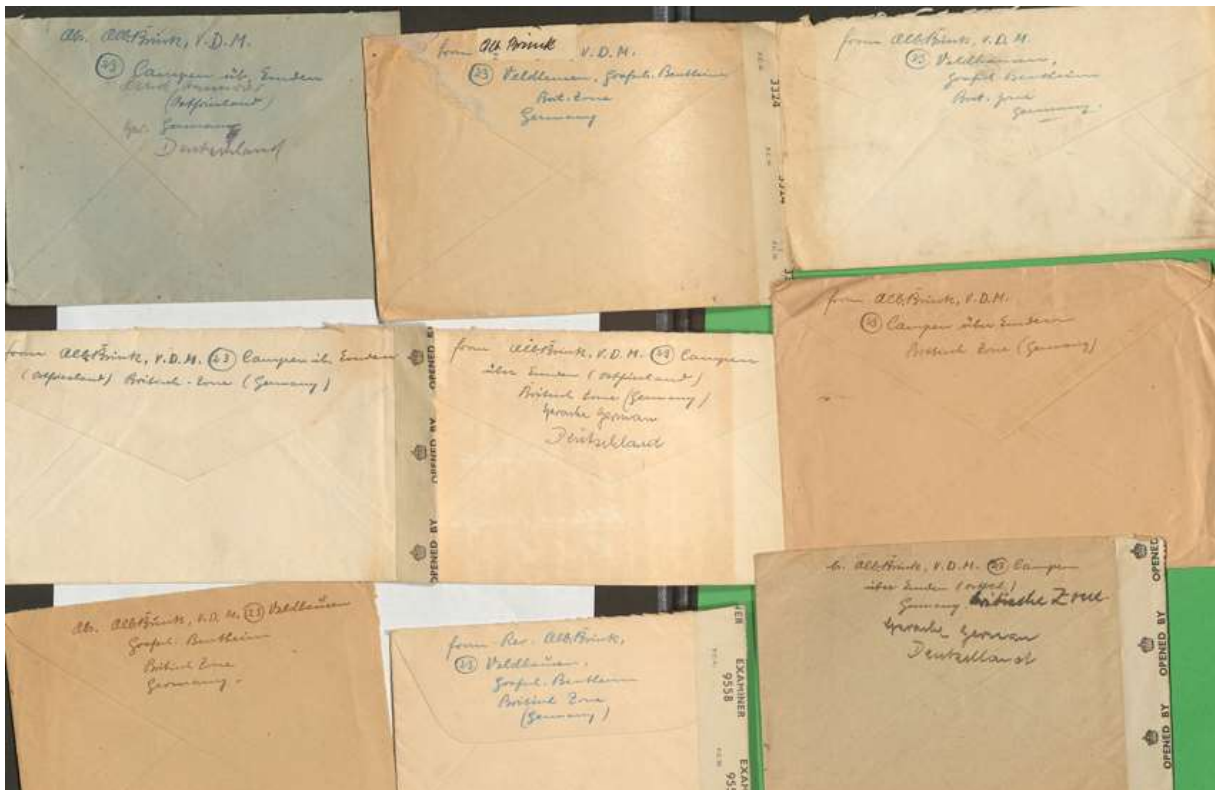 Abs. Alb. Brink, V.D.M.
(23) Campen üb. Emden
(Ostfriesland)
Germany
Deutschland
from Alb. Brink V.D.M.
(23) Veldhausen, Grafsch. Bentheim
Brit-Zone
Germany
3324
from Alb. Brink, V.D.M.
(23) Veldhausen,
Grafsch. Bentheim
Brit-Zone
Germany.
from Alb. Brink, V.D.M. (23) Campen üb. Emden
(Ostfriesland) British-Zone (Germany)
OPENED BY
OPENED BY
OPENED BY
from Alb. Brink, V.D.M. (23) Campen
über Emden (Ostfriesland)
British Zone (Germany)
Sprache German
Deutschland
from Alb. Brink, V.D.M.
(23) Campen über Emden
British Zone (Germany)
Abs. Alb. Brink, V.D.M. (23) Veldhausen
Grafsch. Bentheim
British Zone
Germany.
from Rev. Alb. Brink,
(23) Veldhausen.
Grafsch. Bentheim
British Zone
(Germany)
EXAMINER
9558
Alb. Brink, V.D.M. (23) Campen
über Emden
Germany. britische Zone
Sprache German
Deutschland
OPENED
OPENED BY
OPENED BY